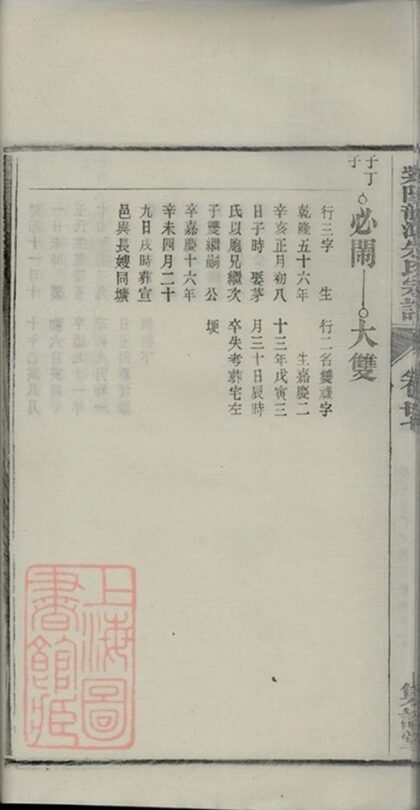 氏宗譜
子丁
必鬧
大雙
行三字　生
乾隆五十六年
辛亥正月初八
日子時　娶茅
氏以兄繼次
子雙繼嗣　公
卒嘉慶十六年
辛未四月二十
九日戌時葬宣
邑與長嫂同壙
行二名雙字
生嘉慶二
十三年戊寅三
月三十日辰時
卒失考葬宅左
埂
上海圖
書館藏